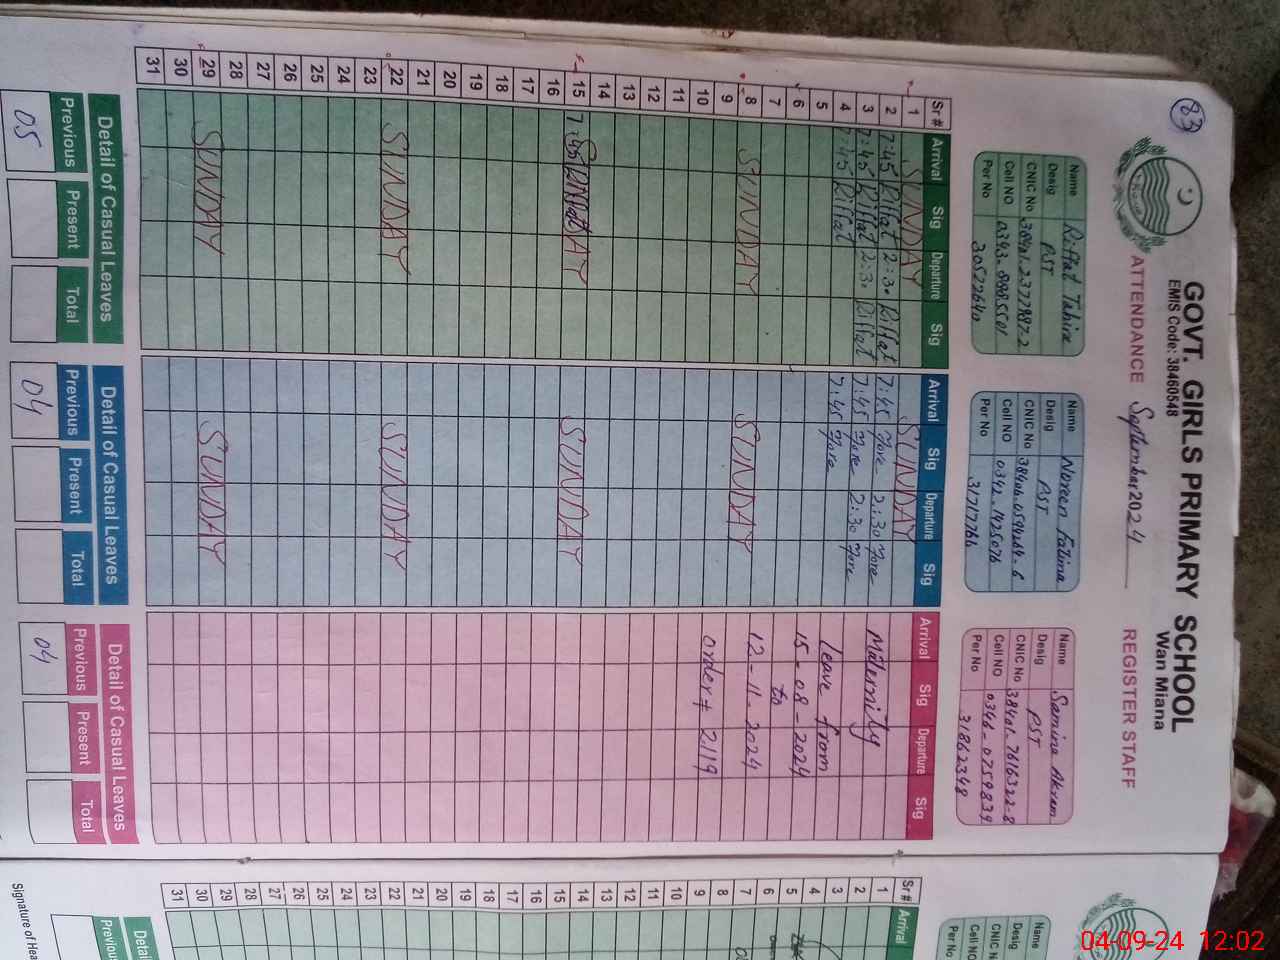 83
GOVT. GIRLS PRIMARY SCHOOL
EMIS Code: 38460548
Wan Miana
ATTENDANCE September 2024 REGISTER STAFF
Name Riffat Tahira
Desig PST
CNIC No
Cell NO
Per No 30572640
Name Noreen Fatima
Desig PST
CNIC No
Cell NO 0342-1425076
Per No 31717766
Name Samina Akram
Desig PST
CNIC No 38401-7616322-8
Cell NO 0346-0759839
Per No 31862348
Sr# Arrival Sig Departure Sig Arrival Sig Departure Sig Arrival Sig Departure Sig
1 SUNDAY SUNDAY
2 7:45 Riffat 2:30 Riffat 7:45 2:30 Maternity
3 7:45 Riffat 2:30 Riffat 7:45 2:30
4 7:45 Riffat 7:45 leave from
5 15-08-2024
6 to
7 12-11-2024
8 SUNDAY SUNDAY
9 order # 2119
10
11
12
13
14
15 7:45 Riffat SUNDAY SUNDAY
16
17
18
19
20
21
22 SUNDAY SUNDAY
23
24
25
26
27
28
29 SUNDAY SUNDAY
30
31
Detail of Casual Leaves
Previous Present Total
05
Detail of Casual Leaves
Previous Present Total
04
Detail of Casual Leaves
Previous Present Total
04
Name
Desig
CNIC No
Cell NO
Per No
Sr# Arrival
1
2
3
4
5
6
7
8
9
10
11
12
13
14
15
16
17
18
19
20
21
22
23
24
25
26
27
28
29
30
31
04-09-24 12:02